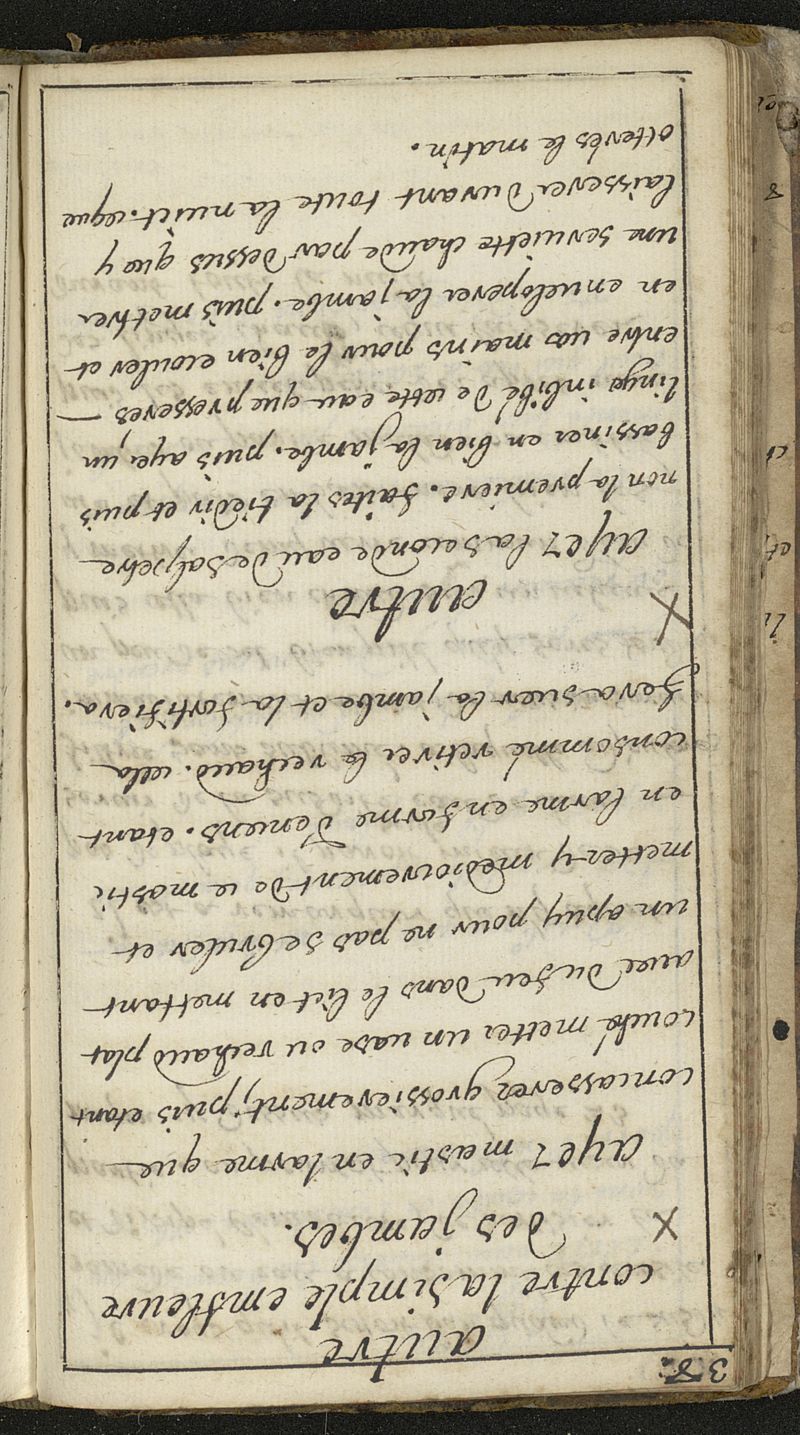 38.
autre
contre la simple emfleure
des jambes.
× ayez mastic en larme que
concasserez grossierement, puis etant
couché metter un vase ou rechaud plat
avec du feu dans le lict en mettant
un apuy pour ne pas se bruler et
metter y mediocrement de ce mastic
en larme en forme d'encens. etant
consommé retirer le rechaud. cella
fera suer la jambe et la fortifiera.
× autre
ayez la seconde eau de salpetre
non la premiere. faites la tiedir et puis
bassiner en bien la jambe. puis ayez un
linge inbibé de cette eau que presseres
entre vos mains pour le bien ecouler et
en enveloperer la jambe. puis mettrer
une serviette chaude par dessus que y
laisserer durant toute la nuict. que
otterés le matin.